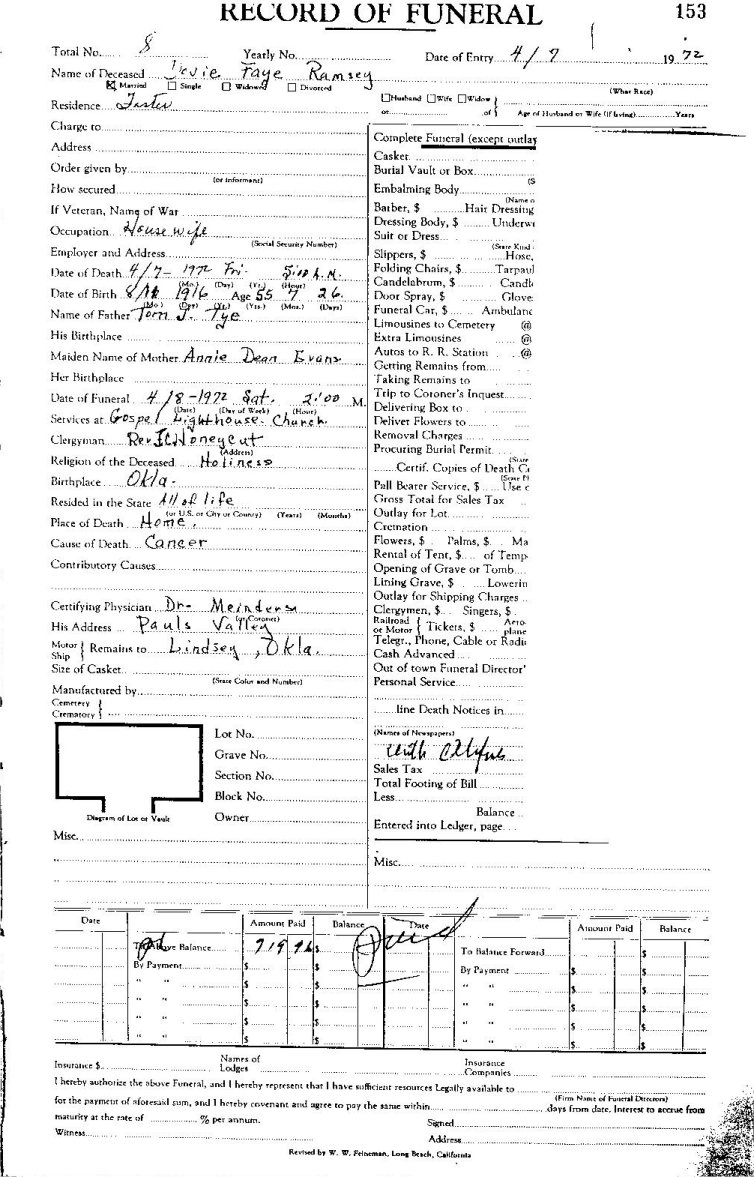 RECORD OF FUNERAL 153
Total No. 8 Yearly No. Date of Entry 4/7 1972
Name of Deceased Faye Ramsey
Married Single Widowed Divorced (What Race)
Residence Foster Husband Wife Widow
or of Age of Husband or Wife (if living) Years
Charge to
Address
Order given by
(or informant)
How secured
If Veteran, Name of War
Occupation House wife
(Social Security Number)
Employer and Address
Date of Death 4/7-1972 Fri. 5:00 A.M.
(Mo.) (Day) (Yr.) (Hour)
Date of Birth 8/ 1916 Age 55 7 26.
(Mo.) (Day) (Yr.) (Yrs.) (Mos.) (Days)
Name of Father Tom J. Tye
His Birthplace
Maiden Name of Mother Annie Dean Evans
Her Birthplace
Date of Funeral 4/8-1972 Sat. 2:00 M.
(Date) (Day of Week) (Hour)
Services at Gospel Lighthouse Church.
Clergyman Rev
(Address)
Religion of the Deceased Holiness
Birthplace Okla.
Resided in the State All of life
(or U.S. or City or County) (Years) (Months)
Place of Death Home.
Cause of Death Cancer
Contributory Causes
Certifying Physician Dr- Meinders
(or Coroner)
His Address Pauls Valley
Motor Ship } Remains to Lindsey, Okla.
Size of Casket
(State Color and Number)
Manufactured by
Cemetery
Crematory }
Lot No.
Grave No.
Section No.
Block No.
Diagram of Lot or Vault Owner
Misc.
Complete Funeral (except outlay
Casket
Burial Vault or Box
(S
Embalming Body
(Name o
Barber, $ Hair Dressing
Dressing Body, $ Underwe
Suit or Dress
(State Kind
Slippers, $ Hose,
Folding Chairs, $ Tarpaul
Candelabrum, $ Candle
Door Spray, $ Glove
Funeral Car, $ Ambulanc
Limousines to Cemetery @
Extra Limousines @
Autos to R. R. Station @
Getting Remains from
Taking Remains to
Trip to Coroner's Inquest
Delivering Box to
Deliver Flowers to
Removal Charges
Procuring Burial Permit
(State
Certif. Copies of Death Ce
Pall Bearer Service, $ Use o
Gross Total for Sales Tax
Outlay for Lot
Cremation
Flowers, $ Palms, $ Ma
Rental of Tent, $ of Temp
Opening of Grave or Tomb
Lining Grave, $ Lowerin
Outlay for Shipping Charges
Clergymen, $ Singers, $
Railroad or Motor } Tickets, $ Aero-plane
Telegr., Phone, Cable or Radio
Cash Advanced
Out of town Funeral Director'
Personal Service
line Death Notices in
(Names of Newspapers)
with
Sales Tax
Total Footing of Bill
Less
Balance
Entered into Ledger, page
Misc.
Date Amount Paid Balance Date Amount Paid Balance
To Above Balance 719 96 $ Paid To Balance Forward $
By Payment $ $ By Payment $ $
" " $ $ " " $ $
" " $ $ " " $ $
" " $ $ " " $ $
" " $ $ " " $ $
Insurance $ Names of Lodges Insurance Companies
I hereby authorize the above Funeral, and I hereby represent that I have sufficient resources Legally available to
(Firm Name of Funeral Directors)
for the payment of aforesaid sum, and I hereby covenant and agree to pay the same within days from date. Interest to accrue from
maturity at the rate of % per annum. Signed
Witness Address
Revised by W. W. Feineman, Long Beach, California